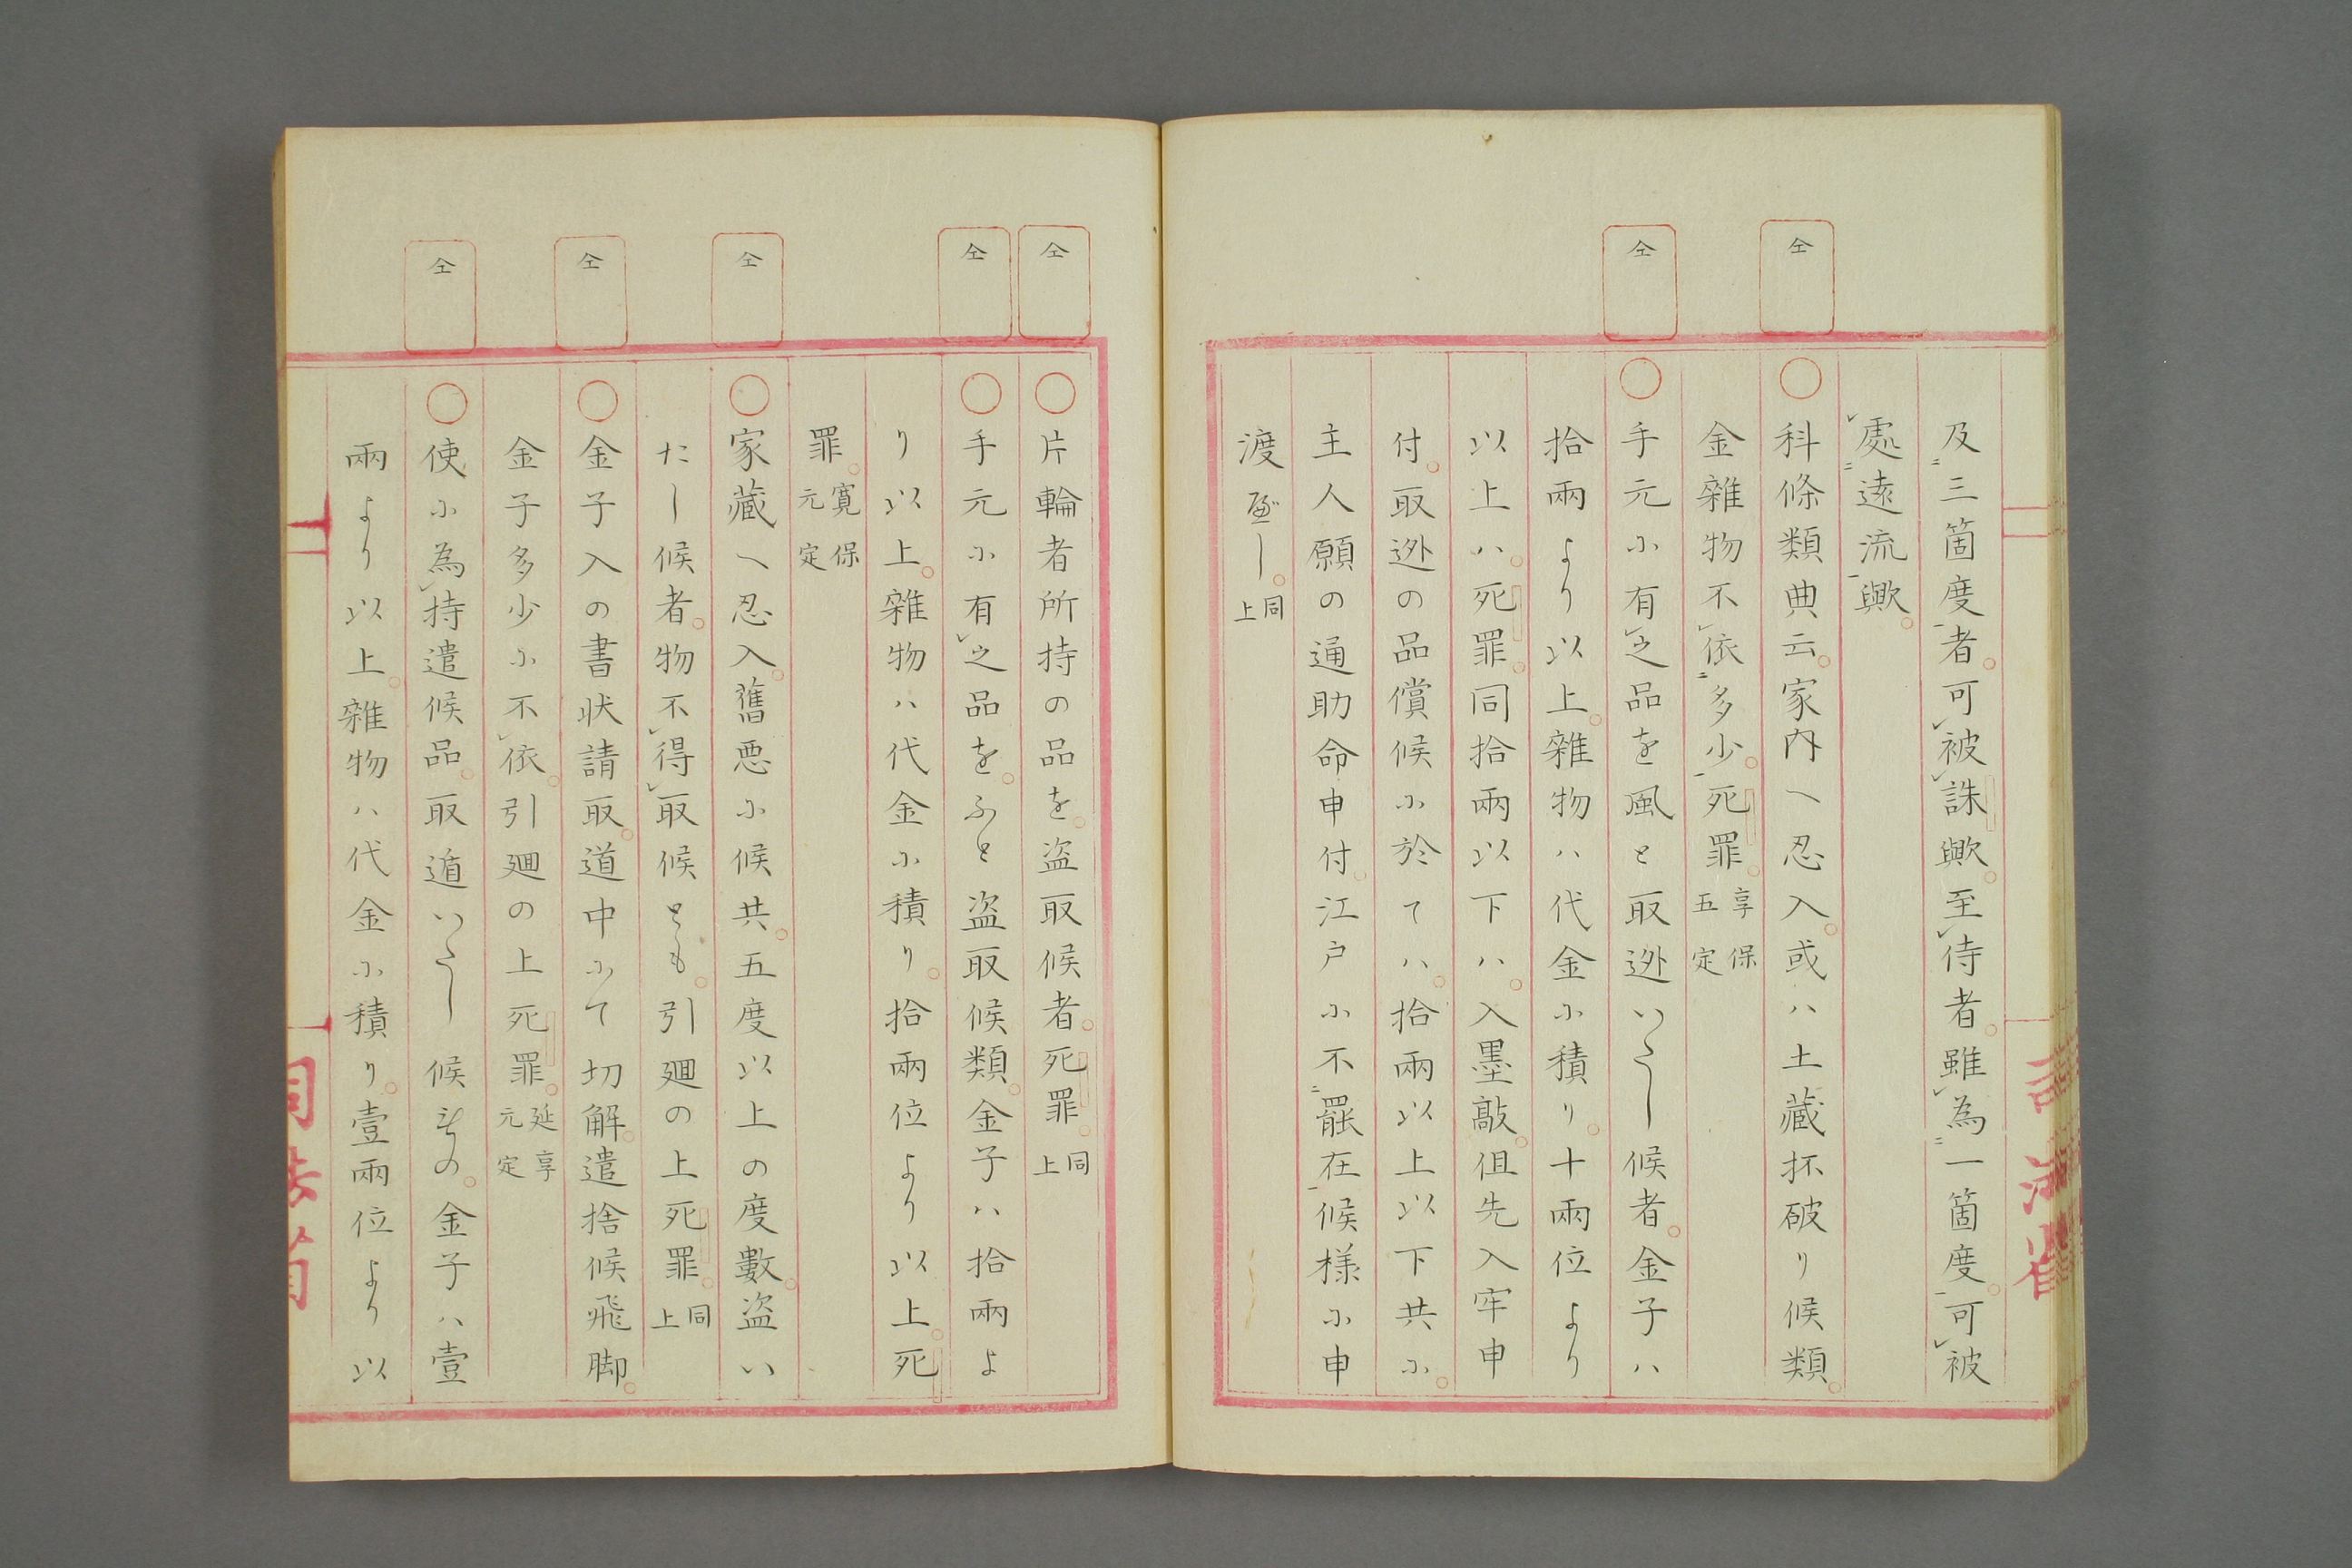 及三箇度者可被誅歟至侍者雖為一箇度可被
處遠流歟
仝
科條類典云家内へ忍入或ハ土藏抔破り候類
金雜物不依多少死罪享保五定
仝
手元に有之品を風と取迯いたし候者金子ハ
拾兩より以上雜物ハ代金に積り十兩位より
以上ハ死罪同拾兩以下ハ入墨敲但先入牢申
付取迯の品償候に於てハ拾兩以上以下共に
主人願の通助命申付江戸に不罷在候様に申
渡べし同上
仝
片輪者所持の品を盗取候者死罪同上
仝
手元に有之品をふと盗取候類金子ハ拾兩よ
り以上雜物ハ代金に積り拾兩位より以上死
罪寛保元定
仝
家藏へ忍入舊悪に候共五度以上の度數盗い
たし候者物不得取候とも引廻の上死罪同上
仝
金子入の書状請取道中にて切解遣捨候飛脚
金子多少に不依引廻の上死罪延享元定
仝
使に為持遣候品取逃いたし候もの金子ハ壹
兩より以上雜物ハ代金に積り壹兩位より以
司法省